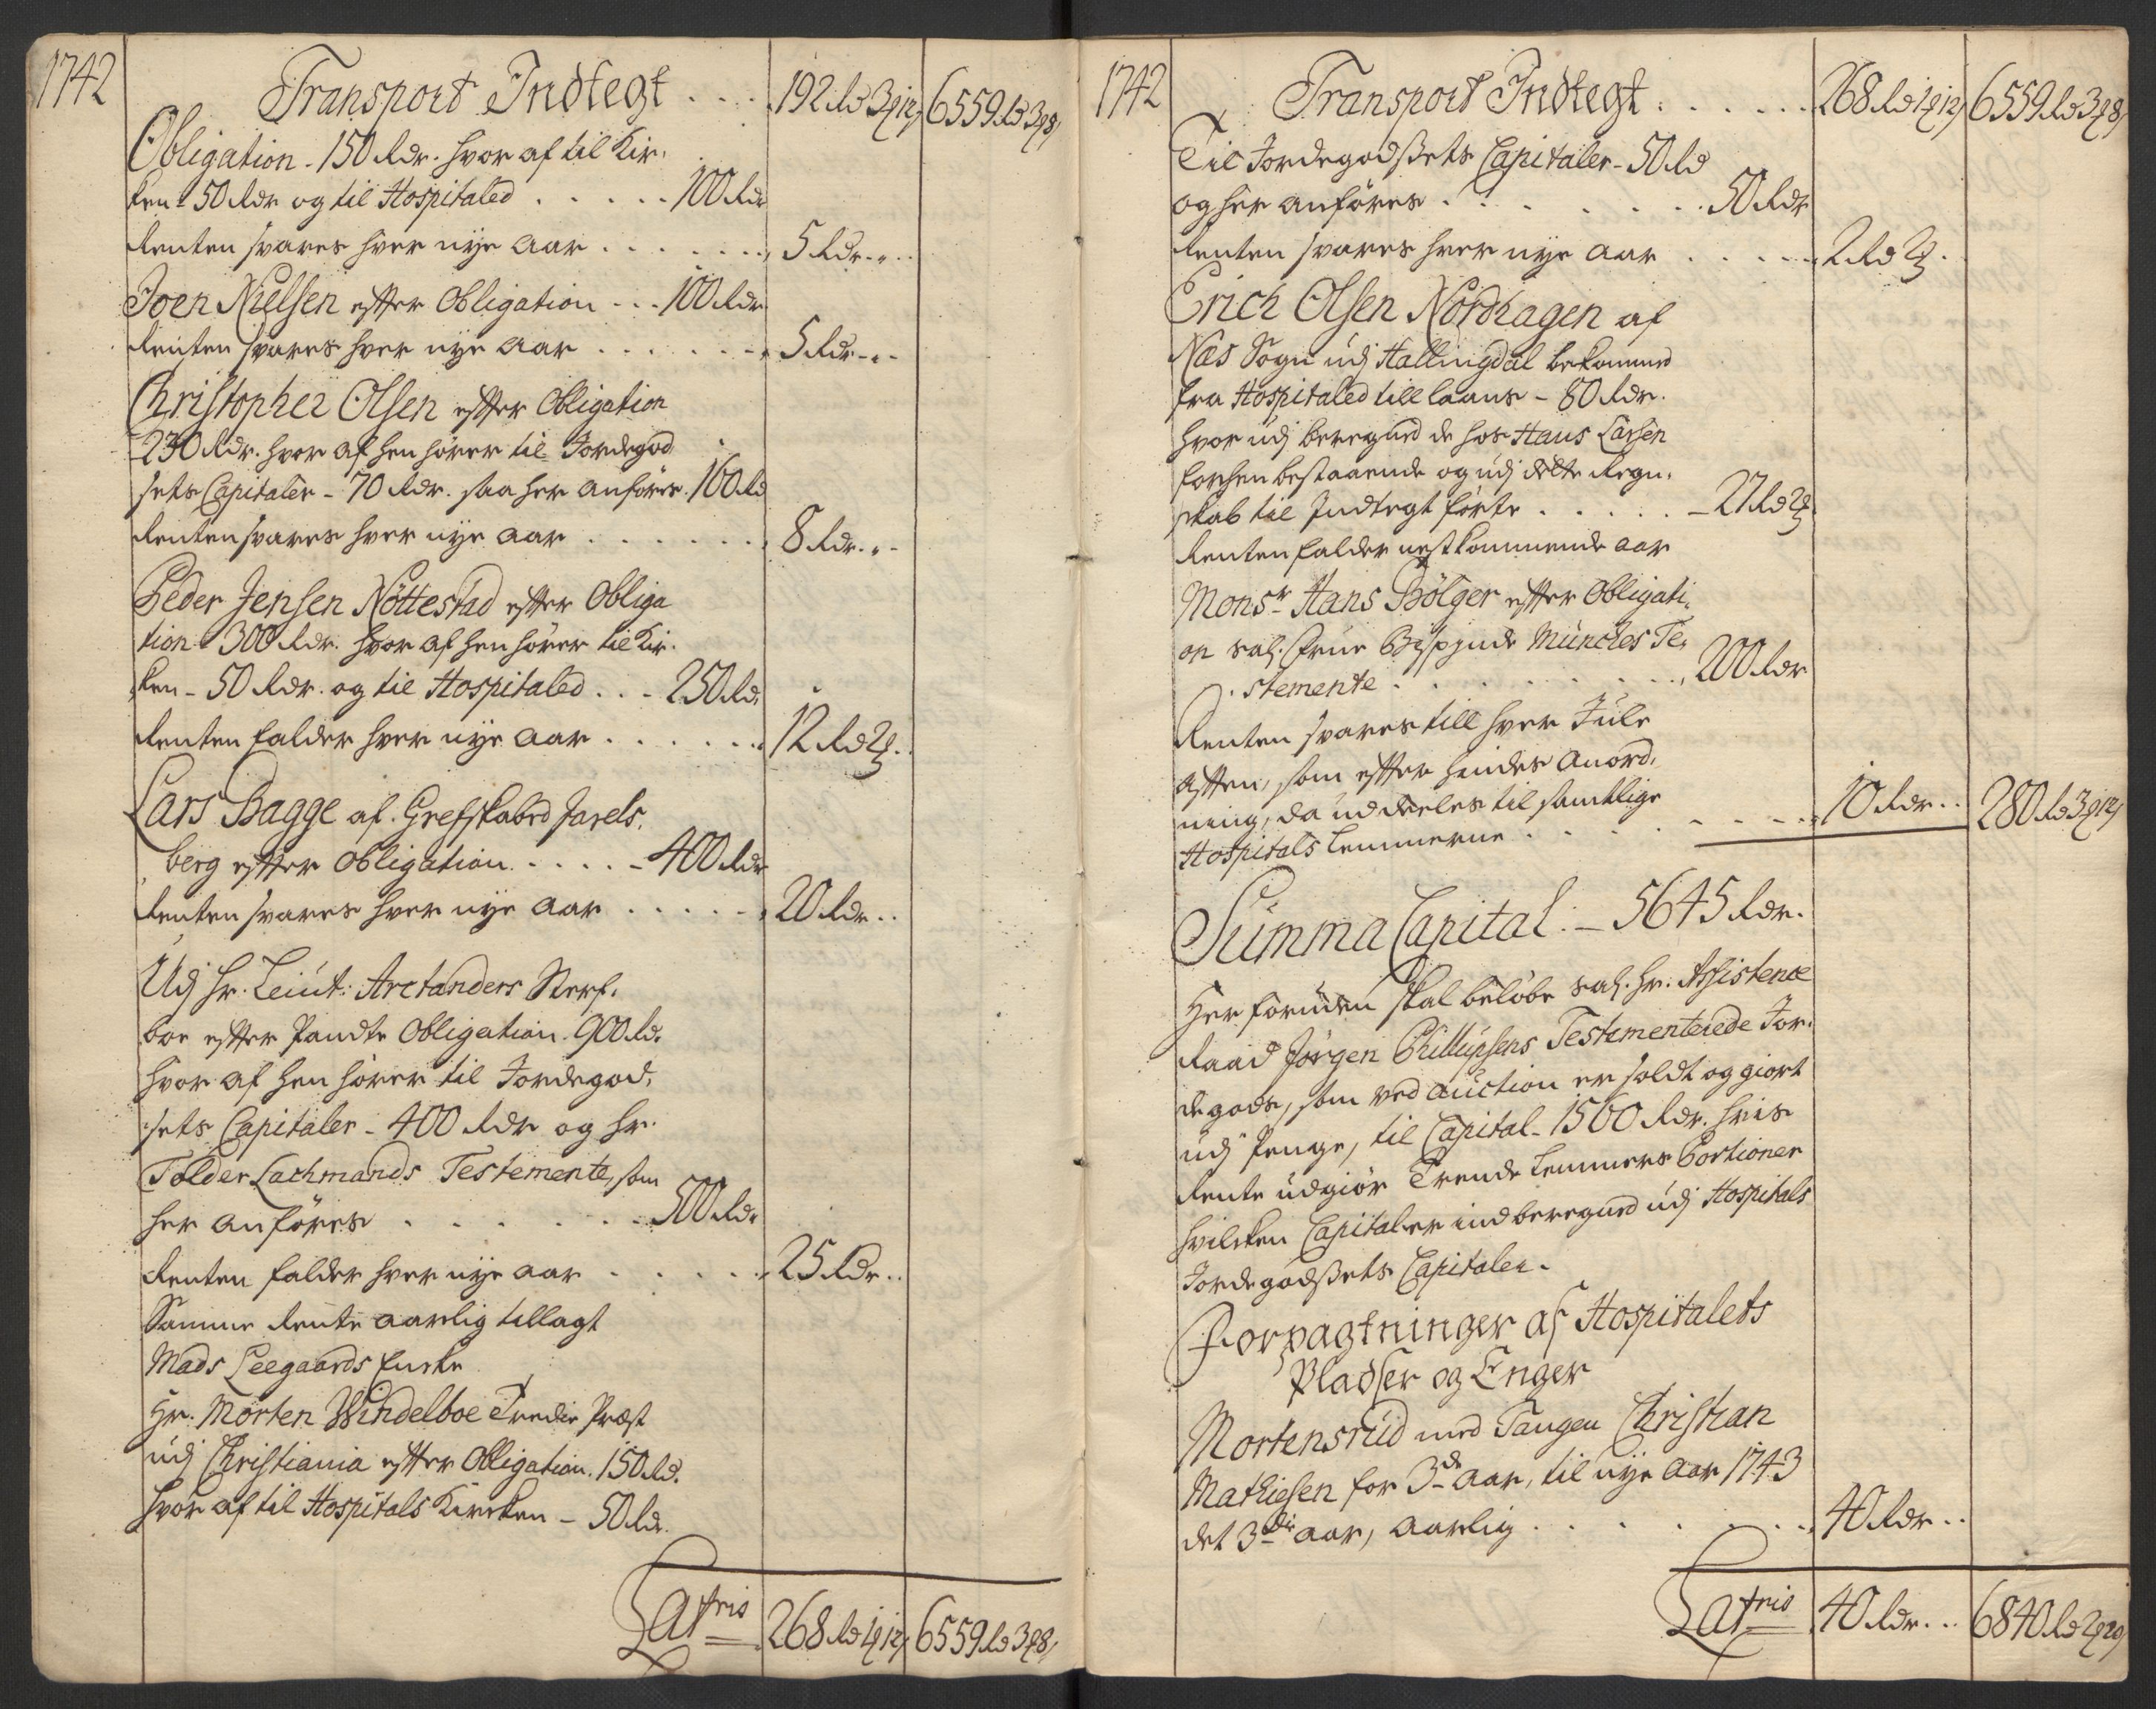 1742
Transport Indtegt . . . 192 Rd 3 ꝗ 12 6559 Rd 3 ꝗ 8
Obligation - 150 Rdr. hvor af til Kir-
ken - 50 Rdr og til Hospitaled . . . . . 100 Rdr
Renten svares hver nye aar . . . . . . 5 Rdr . .
Joen Nielsen efter Obligation - - - 100 Rdr
Renten svares hver nye aar . . . . . . 5 Rdr - . -
Christopher Olsen efter Obligation
- 230 Rdr. hvor af hen hörer til Jordegod
sets Capitaler - 70 Rdr. saa her anföres. 160 Rd
Renten svares hver nye aar . . . . . . 8 Rdr . . -
Peder Jensen Nöttestad efter Obliga
tion - 300 Rdr. hvor af hen hörer til Kir-
ken - 50 Rdr. og til Hospitaled . . - 250 Rd.
Renten falder hver nye aar . . . . . . 12 Rd 2 ꝗ . .
Lars Bagge af Grefskabed Jarels-
berg efter Obligation . . . . . - 400 Rdr
Renten svares hver nye aar . . . . . . 20 Rdr . .
Udj Hr. Leiut: Arctanders Sterf-
boe efter Pandte Obligation 900 Rd.
hvor af hen hörer til Jordegod-
sets Capitaler - 400 Rdr og Hr.
Tolder Lachmands Testemente, som
her anföres . . . . . . . 500 Rdr
Renten falder hver nye aar . . . . . 25 Rdr . .
Samme Rente aarlig tillagt
Mads Leegaards Encke
Hr. Morten Windelboe Tredie Præst
udj Christiania efter Obligation. 150 Rd.
hvor af til Hospitals Kircken - 50 Rd.
Lat<sup>ris</sup> 268 Rd 1 ꝗ 12 6559 Rd 3 ꝗ 8
1742
Transport Indtegt . . . . . . 268 Rd 1 ꝗ 12 6559 Rd 3 ꝗ 8
Til Jordegodßets Capitaler - 50 Rd
og her anföres . . . . . . . . 50 Rdr
Renten svares hver nye aar . . . . . 2 Rd 2 ꝗ .
Erich Olsen Nordhagen af
Næs Sogn udj Hallingdal bekommed
fra Hospitaled till laans - 80 Rdr.
hvor udj beregned de hos Hans Larsen
forhen bestaaende og udj dette Regn-
skab til Indtegt förte . . . . . - 27 Rd 2 ꝗ
Renten falder nestkommende aar
Mons<sup>r</sup> Hans Bölger efter Obligati-
on sal. Frue Bispinde Münches Te-
stemente . . . . . . . . . 200 Rdr
Renten svares till hver Jule
Aften, som efter hendes Anord-
ning, da uddeeles til samtlige
Hospitals Lemmerne . . . . . . . . . 10 Rdr . . 280 Rd 3 ꝗ 12
Summa Capital - 5645 Rdr.
Her foruden skal belöbe sal. Hr. Assistence
Raad Jörgen Phillipsens Testementerede Jor-
degods, som ved Auction er soldt og giort
udj Penge, til Capital - 1560 Rdr. hvis
Rente udgiör Trende Lemmers Portioner
hvilcken Capital er indberegned udj Hospitals
Jordegodßets Capitaler.
Forpagtninger af Hospitalets
Pladser og Enger
Mortensrud med Tangen Christian
Mathiesen for 3<sup>de</sup> aar, til nye aar 1743
det 3<sup>die</sup> aar, aarlig . . . . . . . 40 Rdr . .
Lat<sup>ris</sup> 40 Rdr . . . 6840 Rd 2 ꝗ 20